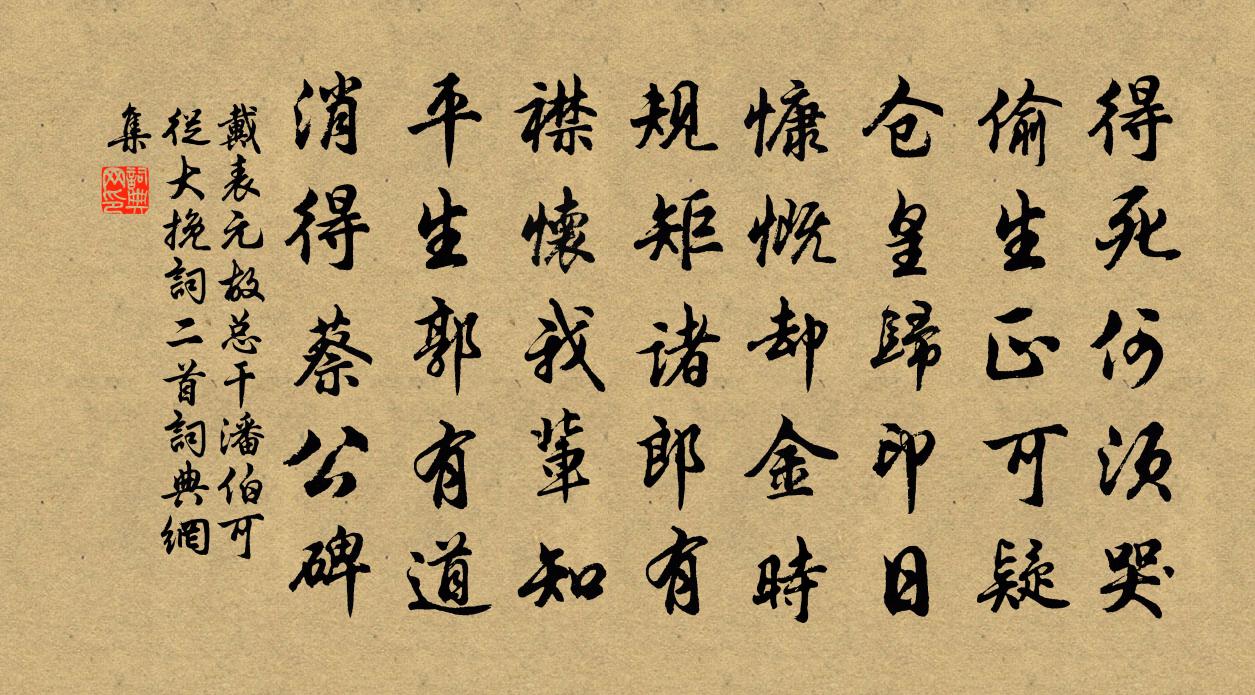 得死何须哭
偷生正可疑
仓皇歸印日
慷慨却金時
規矩诸郎有
襟懷我輩知
平生郭有道
消得蔡公碑
戴表元故总干潘伯可
從大挽詞二首詞典網
集
詞典
网印